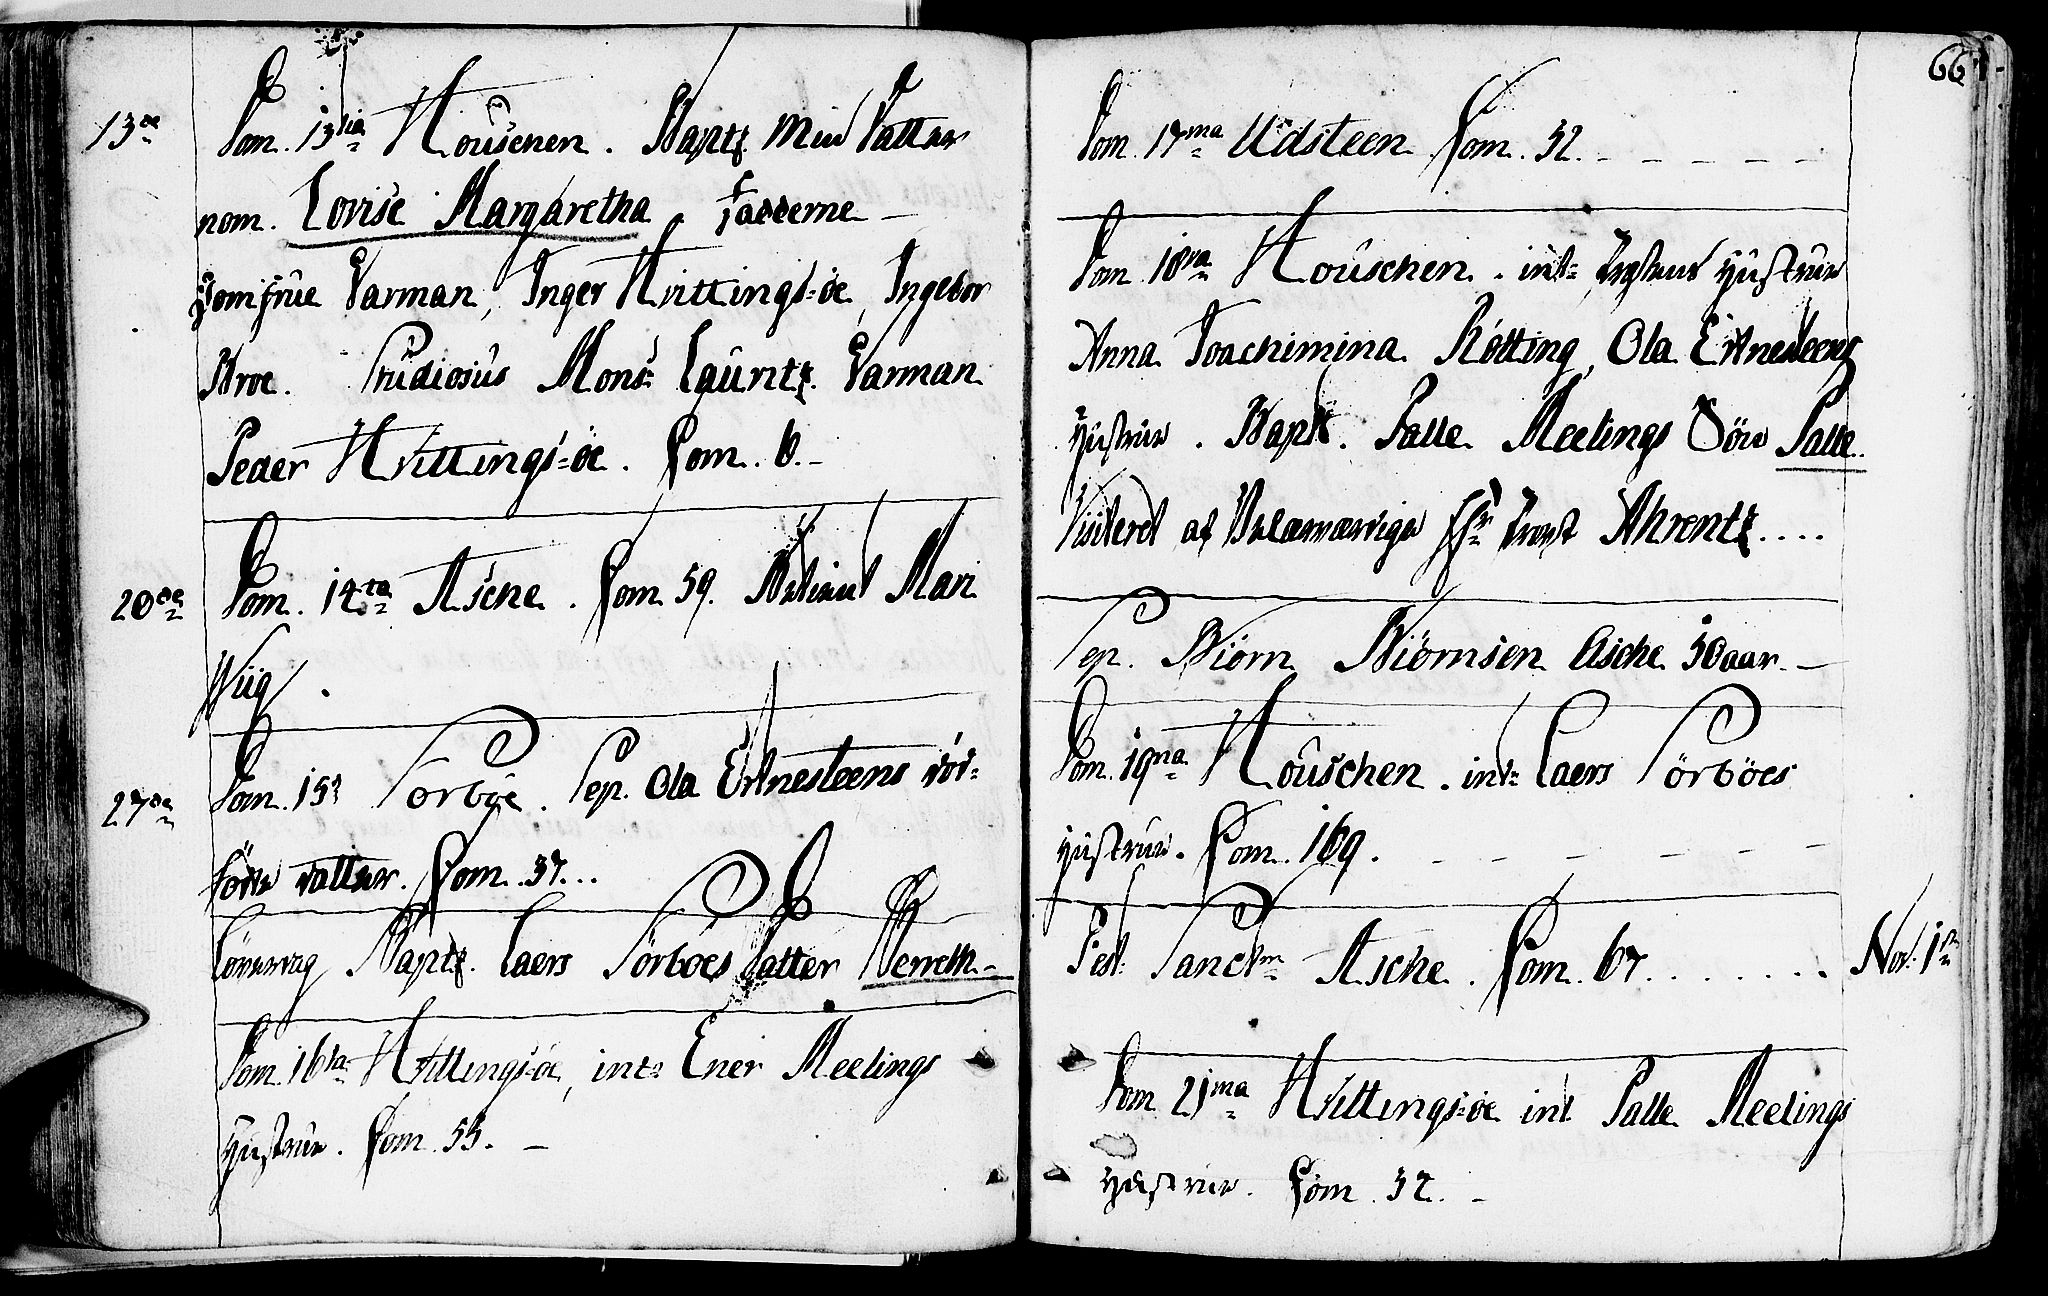 13de Dom. 13tia Houschen. Bapt. min Datter
nom. Lovise Margaretha. Fadderne
Jomfrue Garman, Inger Hvittings-öe, Ingebor
Kroe. Studiosus Mons: Lauritz Garman
Peder Hvittings-öe. Com. 6.
20de Dom. 14ta Asche. Com. 59. Mari
Wiig.
27de Dom. 15ta Sörböe. Sep. Ola Ertnesteens död-
föde datter. Com. 37...
Löverdag Bapt. Laers Sörböes Datter Bereth
Dom. 16ta Hvittings-öe, int: Ener Meelings
Hustrue. Com. 55.
66
Dom. 17ma Udsteen Com. 32.
Dom. 18va Houschen. int: Hustrue
Anna Joachimina Rötting, Ola Ertnesteens
Hustrue. Bapt. Palle Meelings Sön Palle.
Visiteret af Velærværdige Hr. Provst Ahrentz....
Sep. Biörn Biörnsen Asche 50 aar.
Dom. 19na Houschen. int: Laers Sörböes
Hustrue. Com. 169.
Fest: Sanct: Asche. Com. 67....... Nov: 1
Dom. 21ma Hvittings-öe int Palle Meelings
Hustrue. Com. 37.